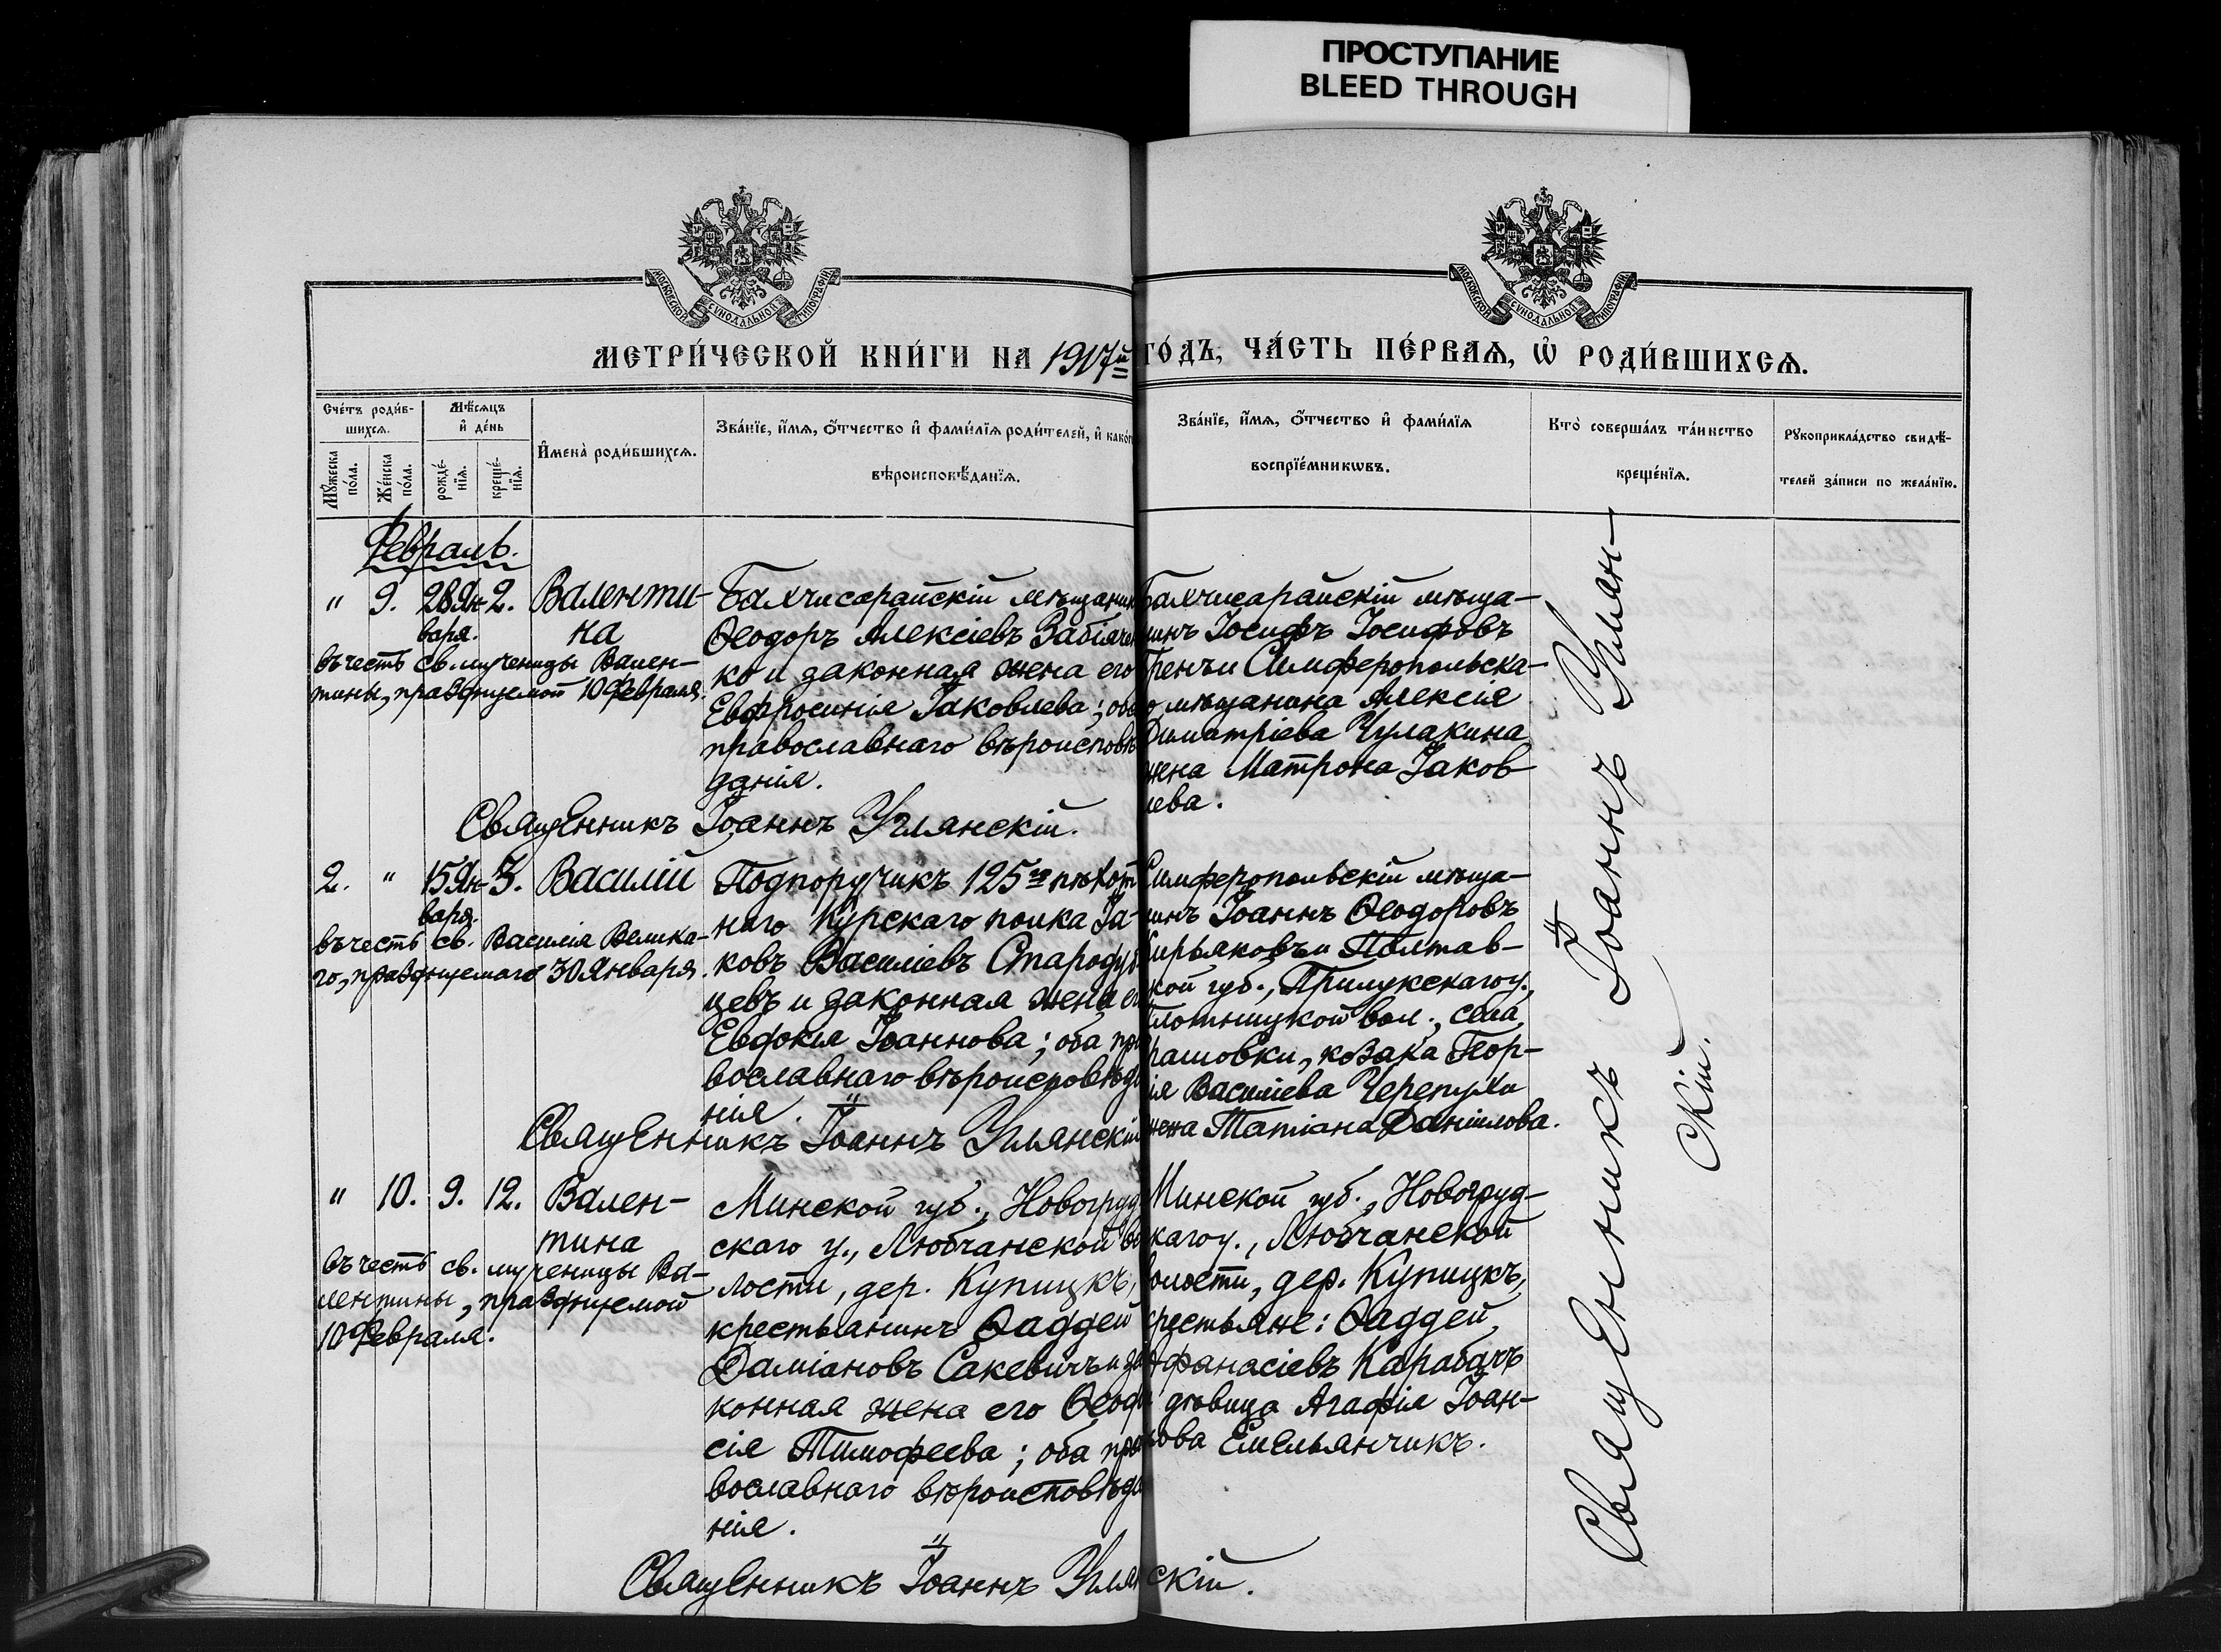 ПРОСТУПАНИЕ
BLEED THROUGH
МОСКОВСКОЙ СѴНОДАЛЬНОЙ ТИПОГРАФІИ
МОСКОВСКОЙ СѴНОДАЛЬНОЙ ТИПОГРАФІИ
МЕТРИ́ЧЕСКОЙ КНИ́ГИ НА 1907й
ГО́ДЪ, ЧА́СТЬ ПЕ́РВАѦ, Ѿ РОДИ́ВШИХСѦ.
Сче́тъ роди́в-
шихсѧ.
Мꙋ́жеска
по́ла.
Же́нска
по́ла.
Мѣ́сѧцъ
и҆ де́нь
рожде́-
нїѧ.
креще́-
нїѧ.
И҆мена̀ роди́вшихсѧ.
Зва́нїе, и҆́мѧ, ѻ҆́тчество и҆ фами́лїѧ роди́телей, и҆ како́г
вѣроисповѣ́данїѧ.
Зва́нїе, и҆́мѧ, ѻ҆́тчество и҆ фами́лїѧ
воспрїе́мникѡвъ.
Кто̀ соверша́лъ та́инство
креще́нїѧ.
Рꙋкоприкла́дство свидѣ́-
телей за́писи по жела́нїю.
Февраль.
" 9. 28 Ян- 2.
варя.
Валенти-
на
въ честь св. мученицы Вален-
тины, празднуемой 10 Февраля.
Бахчисарайскій мѣщанин
Ѳеодоръ Алексіевъ Забіячен
ко и законная жена его
Евфросинія Іаковлева; оба
православнаго вѣроисповѣ
данія.
Бахчисарайскій мѣща-
нинъ Іосифъ Іосифовъ
Гренъ и Симферопольска-
го мѣщанина Алексія
Димитріева Чулакина
жена Матрона Іаков
лева.
Священникъ Іоаннъ Углянскій.
2. " 15 Ян- 3.
варя.
Василій
въ честь св. Василія Велика-
го, празднуемаго 30 Января.
Подпоручикъ 125го пѣхот
наго Курскаго полка Іа-
ковъ Василіевъ Стародуб
цевъ и законная жена его
Евдокія Іоаннова; оба пра
вославнаго вѣроисповѣда
нія.
Симферопольскій мѣща-
нинъ Іоаннъ Ѳеодоровъ
Кирьяковъ и Полтав-
ской губ., Прилукскаго у.,
вол., села
рашовки, козака Геор-
гія Василіева Черепухи
жена Татіана Даніилова.
Священникъ Іоаннъ Углянскій
" 10. 9. 12.
Вален-
тина
въ честь св. мученицы Ва-
лентины, празднуемой
10 Февраля.
Минской губ., Новогруд
скаго у., Любчанской во
лости, дер. Купицкъ,
крестьянинъ Ѳаддей
Даміановъ Сакевичъ и за
конная жена его Ѳеодо
сія Тимофеева; оба пра
вославнаго вѣроисповѣда
нія.
Минской губ., Новогруд-
скаго у., Любчанской
волости, дер. Купицкъ,
крестьяне: Ѳаддей
Афанасіевъ Карабачъ
дѣвица Агафія Іоан-
нова Емельянчикъ.
Священникъ Іоаннъ Углянскій.
Священникъ Іоаннъ Углян-
скій.